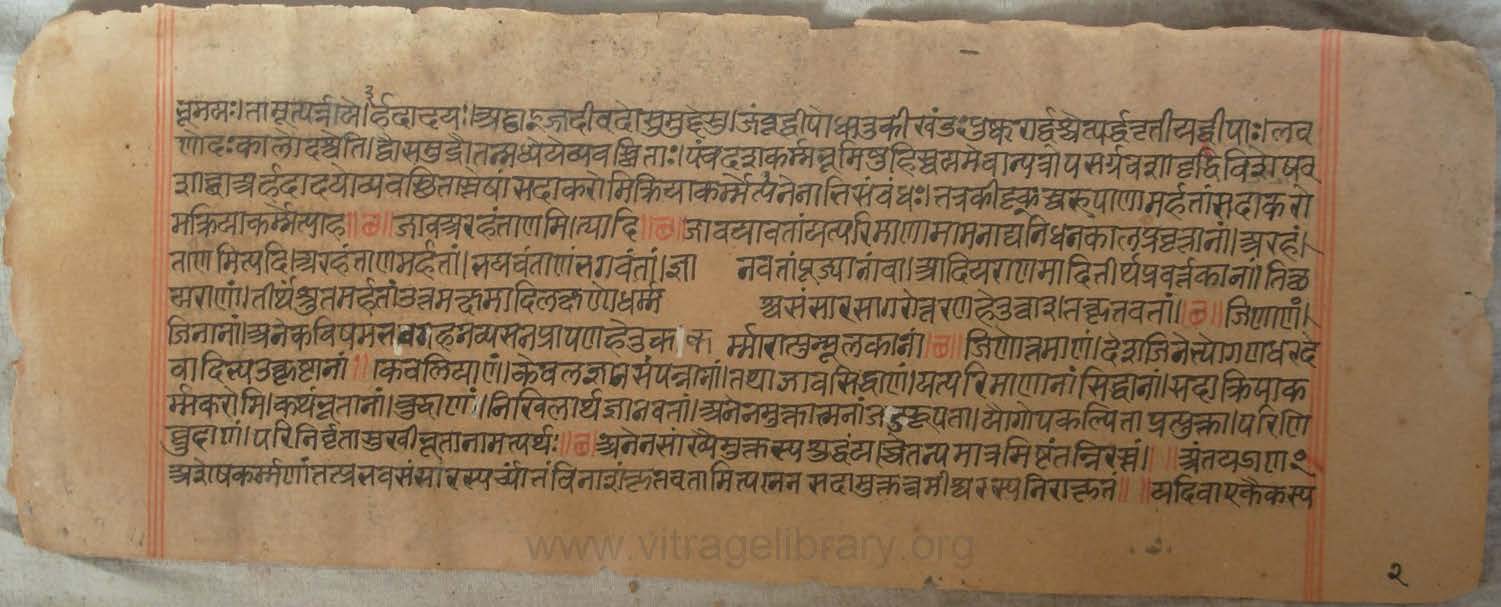 भूमयः। तासूत्पन्ना ये। र्हदादयः। अड्ढाइज्जदीवदोसुमुद्देसु। जंबूद्वीपो धातुकीखंडः पुष्करार्द्धश्चेत्यर्द्धतृतीयद्वीपाः। लव
णोदः कालोदश्चेति। द्वौ समुद्रौ। तन्मध्ये ये व्यवस्थिताः। पंचदशकर्म्मभूमिषु
शाद्वा अर्हदादयो व्यवस्थितास्तेषां सदा करोमि क्रियाकर्म्मेत्यनेनाभिसंबंधः। तत्र कीदृक्स्वरूपाणामर्हतां सदा करो
मि क्रियाकर्म्मेत्याह॥छ॥ जावअरहंताणमित्यादि॥छ॥ जावयावतां यत्परिमाणानामनाद्यनिधनकालप्रवृत्तानां। अरहं।
ताणमित्यदि। अरहंताणमर्हतां। भयवंताणं भगवंतां। ज्ञा नवतां पूज्यानां वा। आदियराणमादितीर्थप्रवर्त्तकानां। तित्थ
यराणं। तीर्थश्रुतमर्हतां उत्तमक्षमादिलक्षणो धर्म्म अ संसारसागरोत्तरणहेतुत्वात्। तत्कृतवतां॥छ॥ जिणाणं।
जिनानां। अनेकविषमभवगहनव्यसनप्रापणहेतुक क र्म्मारात्युन्मूलकानां॥छ॥ जिणोत्तमाणं। देशजिनेभ्यो गणधरदे
वादिभ्य उत्कृष्टानां॥ केवलियाणं। केवलज्ञानसंपन्नानां। तथा जावसिद्धाणं। यत्परिमाणानां सिद्धानां। सदा क्रियाक
र्म्म करोमि। कथंभूतानां। बुद्धाणं। निखिलार्थज्ञानवतां। अनेन मुक्तात्मनां जडरूपता। योगोपकल्पिता प्रत्युक्ता। परिणि
व्वुदाणं। परिनिर्वृतासुखीभूतानामित्यर्थः॥छ॥ अनेन सांख्यैर्मुक्तस्य शुद्धं यच्चैतन्यमात्रमिष्टं तन्निरस्तं।॥ अंतयडाणं
अशेषकर्म्मणां तत्प्रभवसंसारस्य चांतं विनाशं कृतवतामित्यनेन सदामुक्तत्वमीश्वरस्य निराकृतं॥ यदि वा एकैकस्य
२
www.vitragelibrary.org